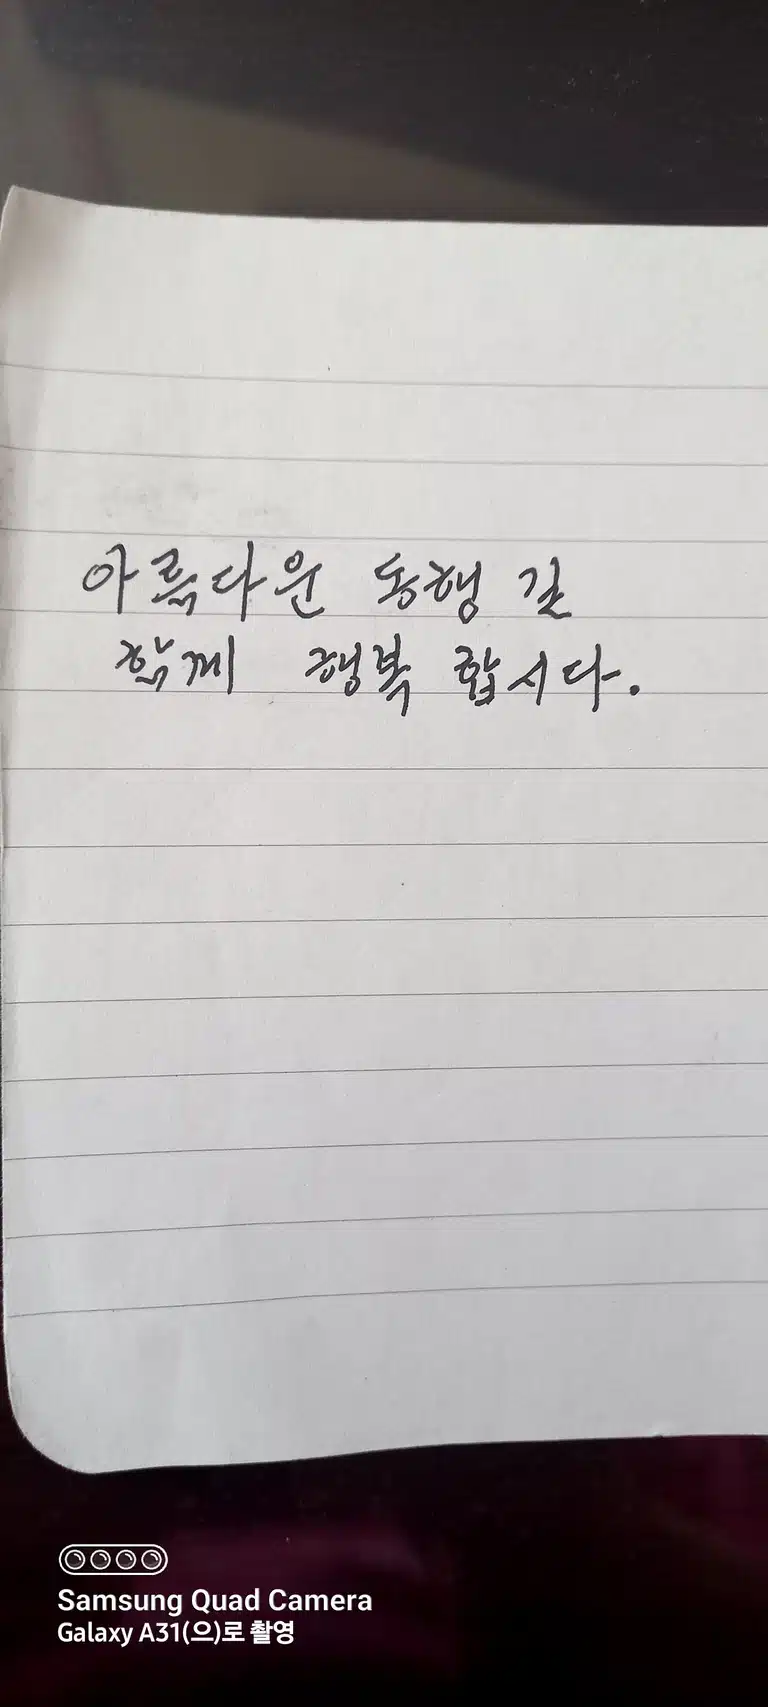 아름다운 동행 길
함께 행복 합시다.
Samsung Quad Camera
Galaxy A31(으)로 촬영